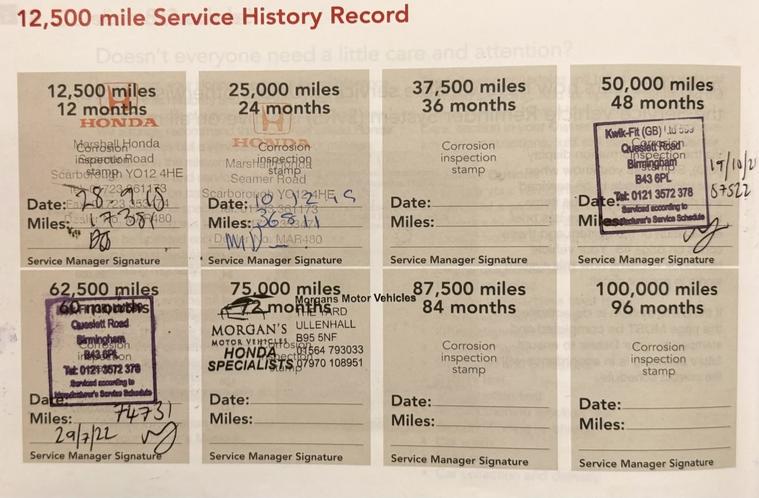 12,500 mile Service History Record
12,500 miles
12 months
HONDA
Marshall Honda
Corrosion
inspection
stamp
Seamer Road
Scarborough YO12 4HE
Date: 28
Miles: 17381
Service Manager Signature
25,000 miles
24 months
HONDA
Corrosion
inspection
stamp
Marshall Honda
Seamer Road
Scarborough YO12 4HE
Date: 10 9 2
Miles: 36811
Dealer No. MAR480
Service Manager Signature
37,500 miles
36 months
Corrosion
inspection
stamp
Date:
Miles:
Service Manager Signature
50,000 miles
48 months
Kwik-Fit (GB) Ltd
Queslett Road
Birmingham
B43 6PL
Tel: 0121 3572 378
Serviced according to
Manufacturer's Service Schedule
Corrosion
inspection
stamp
Date:
Miles: 57522
Service Manager Signature
62,500 miles
60 months
Queslett Road
Birmingham
B43 6PL
Tel: 0121 3572 378
Serviced according to
Manufacturer's Service Schedule
Corrosion
inspection
Date:
Miles: 74731
29/7/22
Service Manager Signature
75,000 miles
72 months
MORGAN'S
MOTOR VEHICLES
HONDA
SPECIALISTS
Morgans Motor Vehicles
THE YARD
ULLENHALL
B95 5NF
01564 793033
07970 108951
Corrosion
inspection
stamp
Date:
Miles:
Service Manager Signature
87,500 miles
84 months
Corrosion
inspection
stamp
Date:
Miles:
Service Manager Signature
100,000 miles
96 months
Corrosion
inspection
stamp
Date:
Miles:
Service Manager Signature